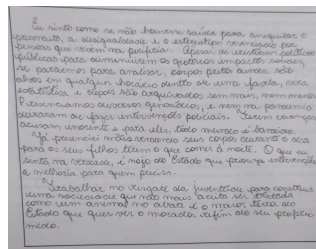 Eu sinto como se não houvesse saída para aniquilar o
preconceito, a desigualdade e o estereótipo vivenciado por
pessoas que vivem na periferia. Apesar de existirem políticas
públicas para diminuírem os quatros impactos sociais,
se pararmos para analisar, corpos pretos ainda são
alvos em qualquer horário dentro de uma favela, vira
estatística e depois são arquivados sem mais, nem menos.
Presenciamos diversos genocídios, e nem na pandemia
deixaram de fazer intervenções policiais. Ferem crianças
acusam inocente e para eles, todo mundo é bandido.
Já presenciei mães armando seus corpos durante o dia
para os seus filhos terem o que comer à noite. O que eu
sinto na verdade, é nojo do Estado que prioriza intervenções
a melhoria para quem precisa.
Trabalhar no resgate da juventude para construir
uma sociedade que não mais aceita ser tratada
como um animal no abate é o maior terror do
Estado que quer ver o morador refém do seu próprio
medo.